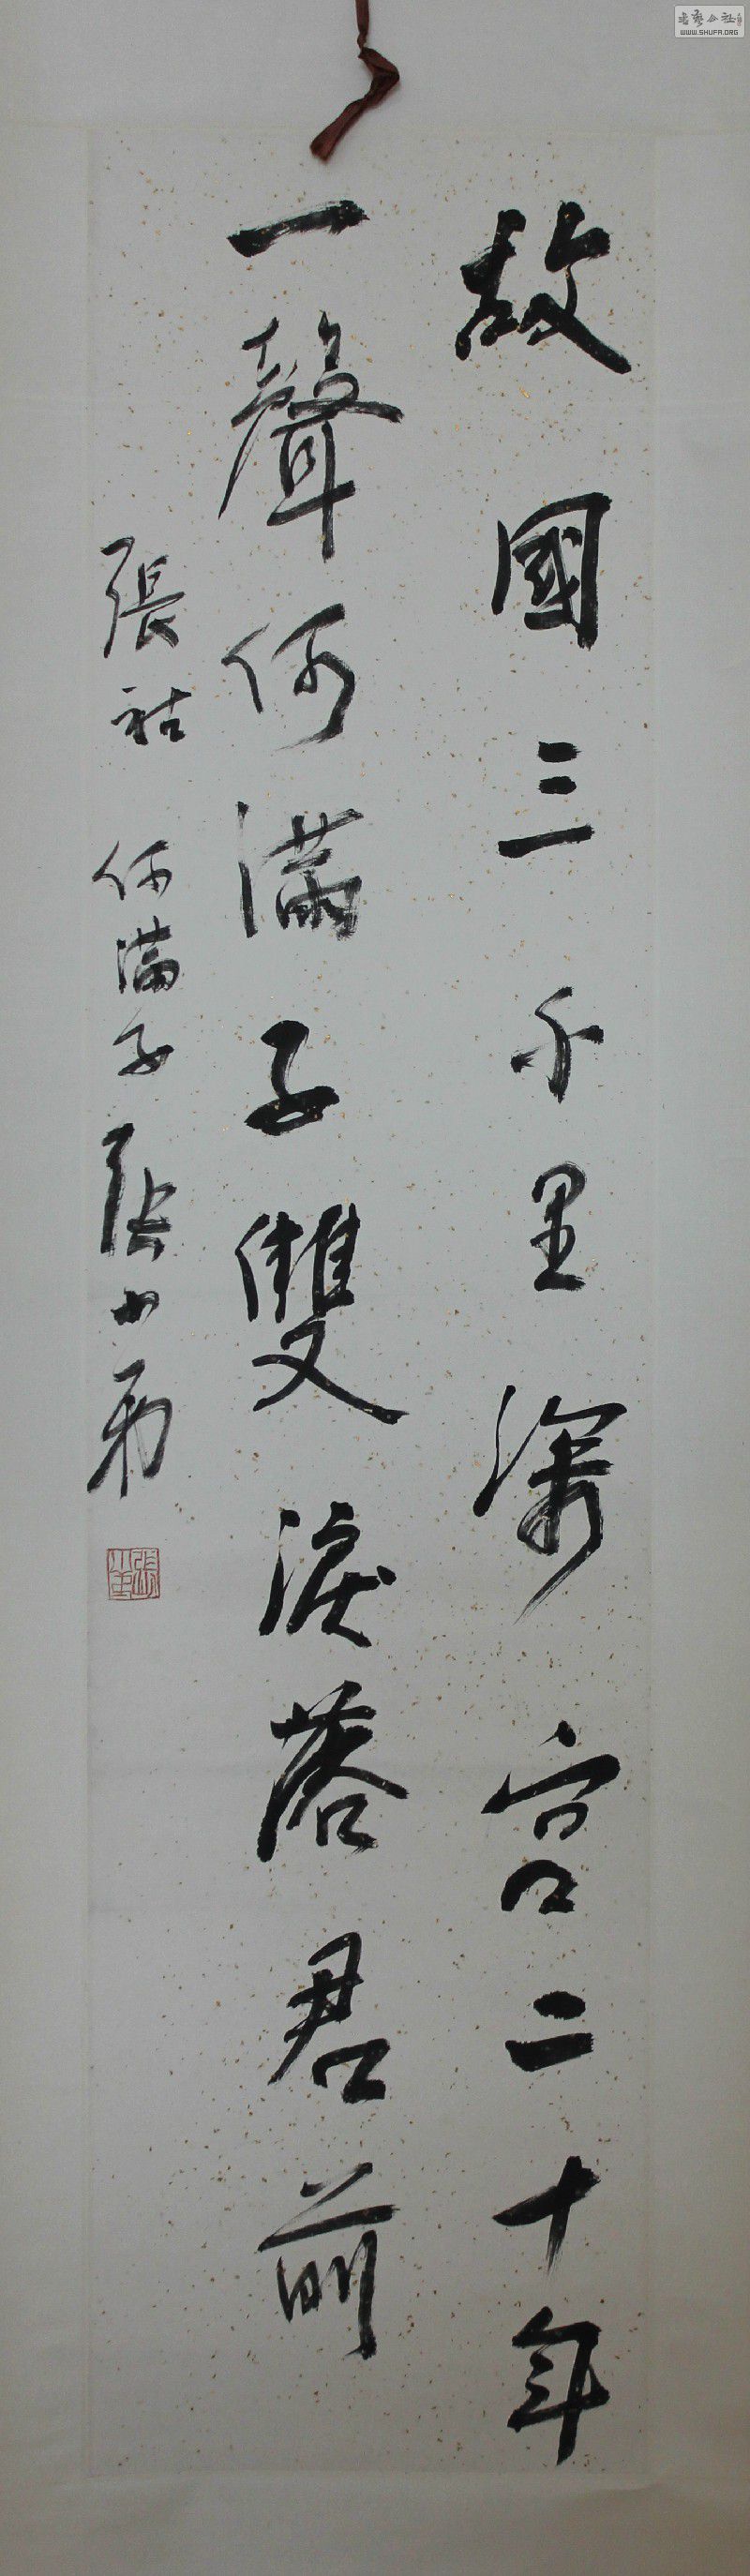 故國三千里深宮二十年
一聲何滿子雙淚落君前
張祜 何滿子 張
WWW.SHUFA.ORG